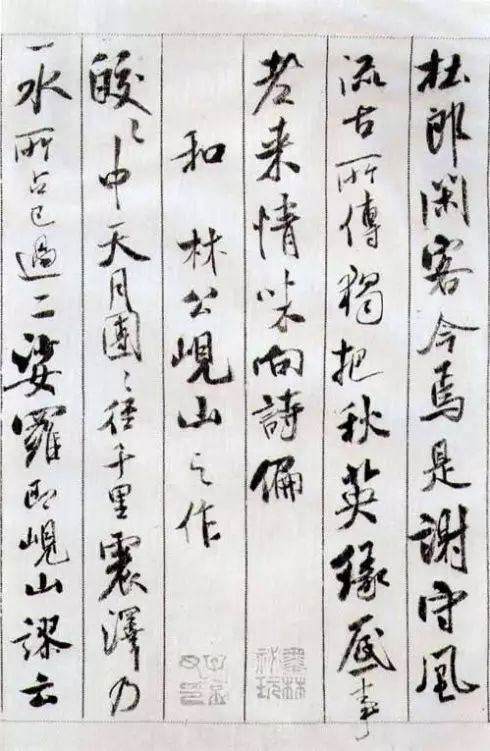 杜郎閑客今焉是謝守風
流古所傳獨把秋英緣底事
老来情味向詩偏
和林公峴山之作
皎〻中天月團〻徑千里震澤乃
一水所占已過二娑羅即峴山謬云